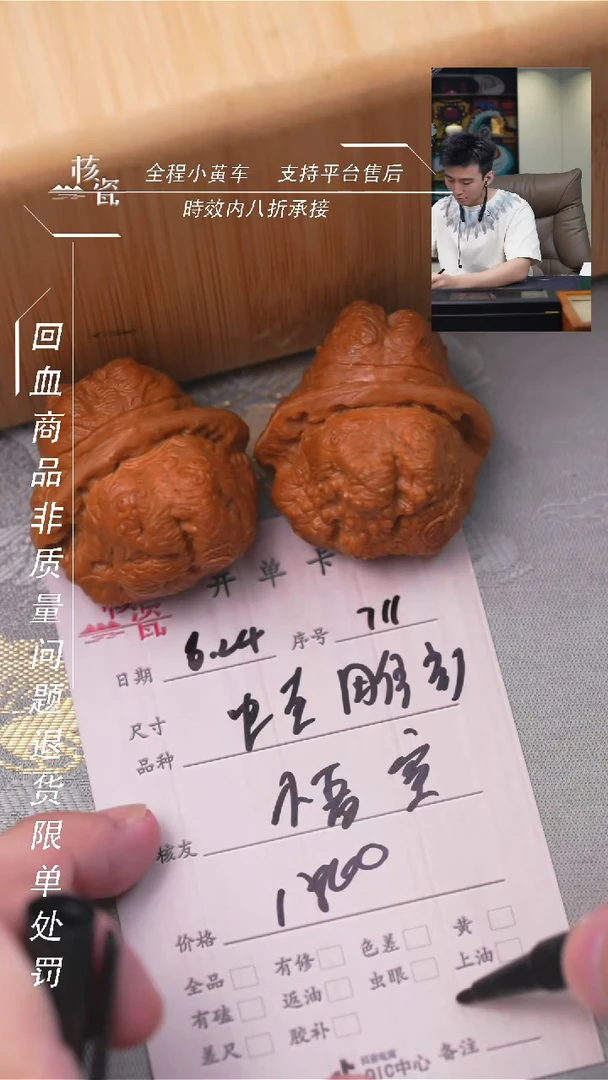 核瓷
全程小黄车 支持平台售后
時效内八折承接
回血商品非质量问题退货限单处罚
开单卡
核瓷
日期 6.24 序号 711
尺寸
品种
悟空
核友
价格
全品 有修 色差 黄
有磕 返油 虫眼 上油
差尺 胶补
QIC中心 备注